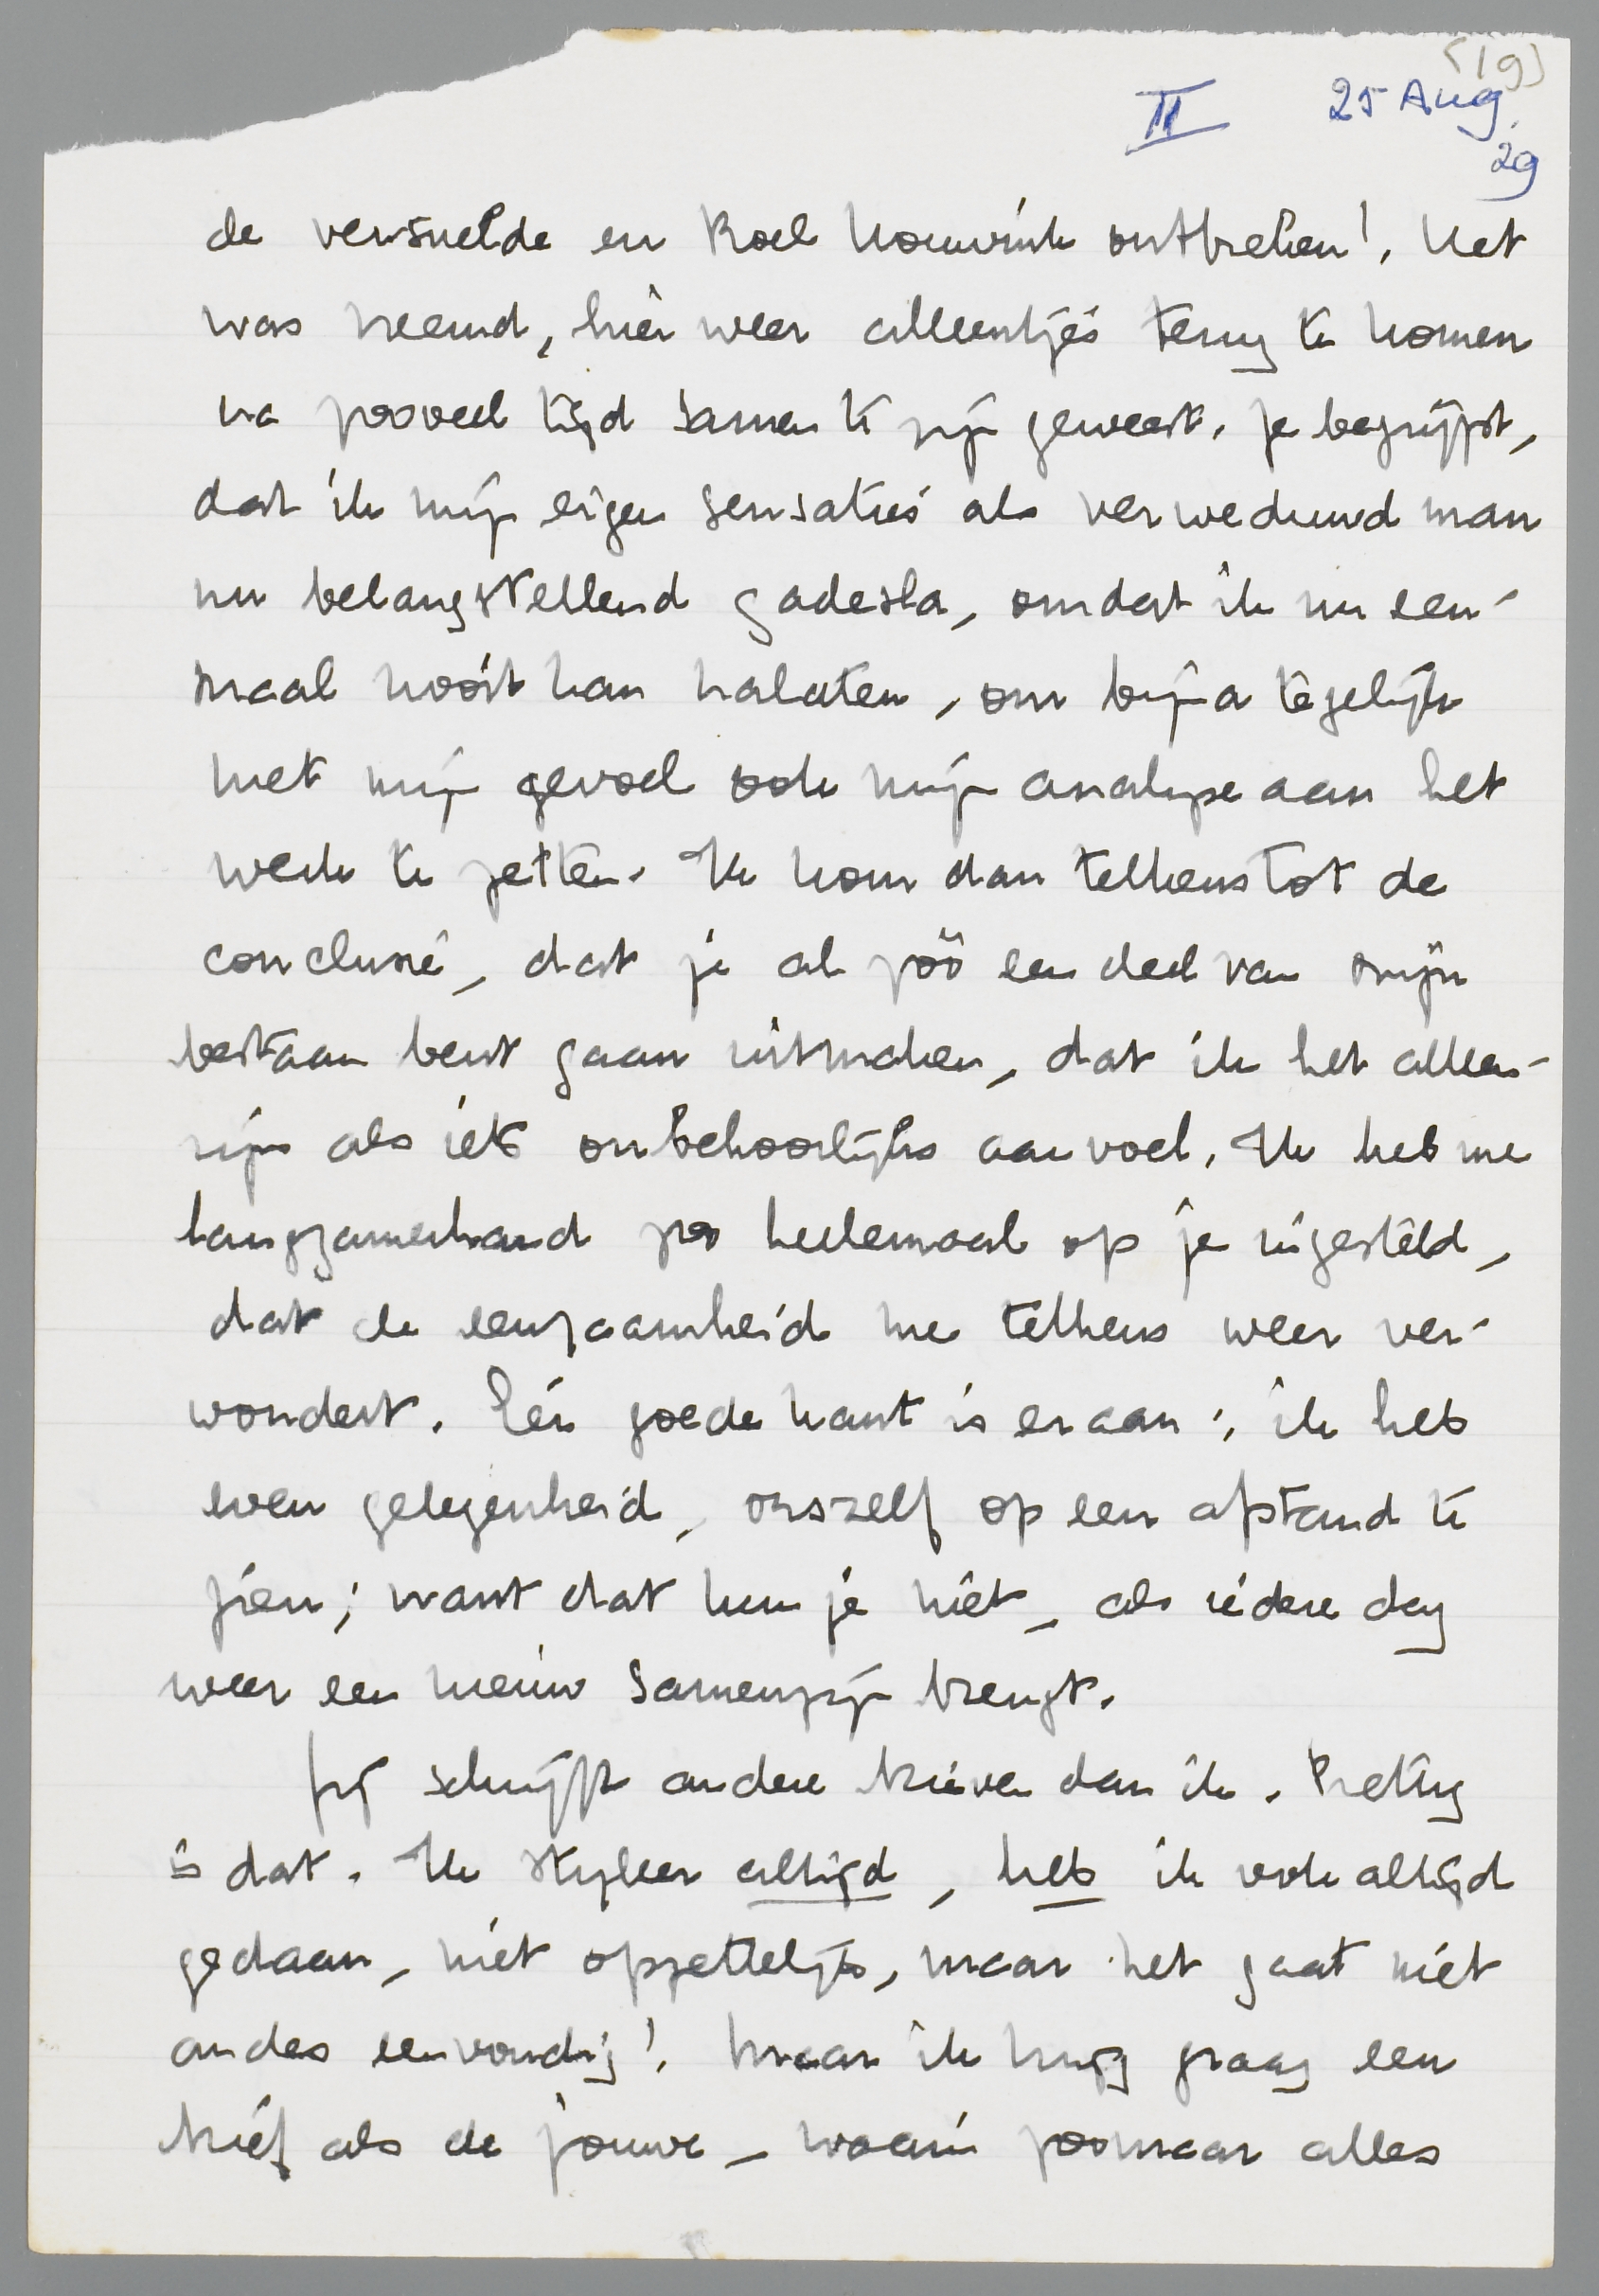 [19]
II 25 Aug.
29
de versnelde en Roel Houwink ontbreken!. Het
was vreemd, hier weer alleentjes terug te komen
na zooveel tijd samen te zijn geweest. Je begrijpt,
dat ik mijn eigen sensaties als verweduwd man
nu belangstellend gadesla, omdat ik nu een-
maal nooit kan nalaten, om bijna tegelijk
met mijn gevoel ook mijn analyse aan het
werk te zetten. Ik kom dan telkens tot de
conclusie, dat je al zóó een deel van mijn
bestaan bent gaan uitmaken, dat ik het alleen-
zijn als iets onbehoorlijks aanvoel. Ik heb me
langzamerhand zoo heelemaal op je ingesteld,
dat de eenzaamheid me telkens weer ver-
wondert. Eén goede kant is eraan: ik heb
even gelegenheid, onszelf op een afstand te
zien; want dat kun je niet, als iedere dag
weer een nieuw samenzijn brengt.
Jij schrijft andere brieven dan ik. Prettig
is dat. Ik styleer altijd, heb ik ook altijd
gedaan, niet opzettelijk, maar het gaat niet
anders eenvoudig!. Maar ik krijg graag een
brief als de jouwe, waarin zoomaar alles